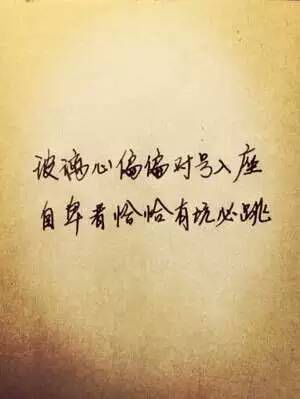 玻璃心偏偏对号入座
自卑者恰恰有坑必跳